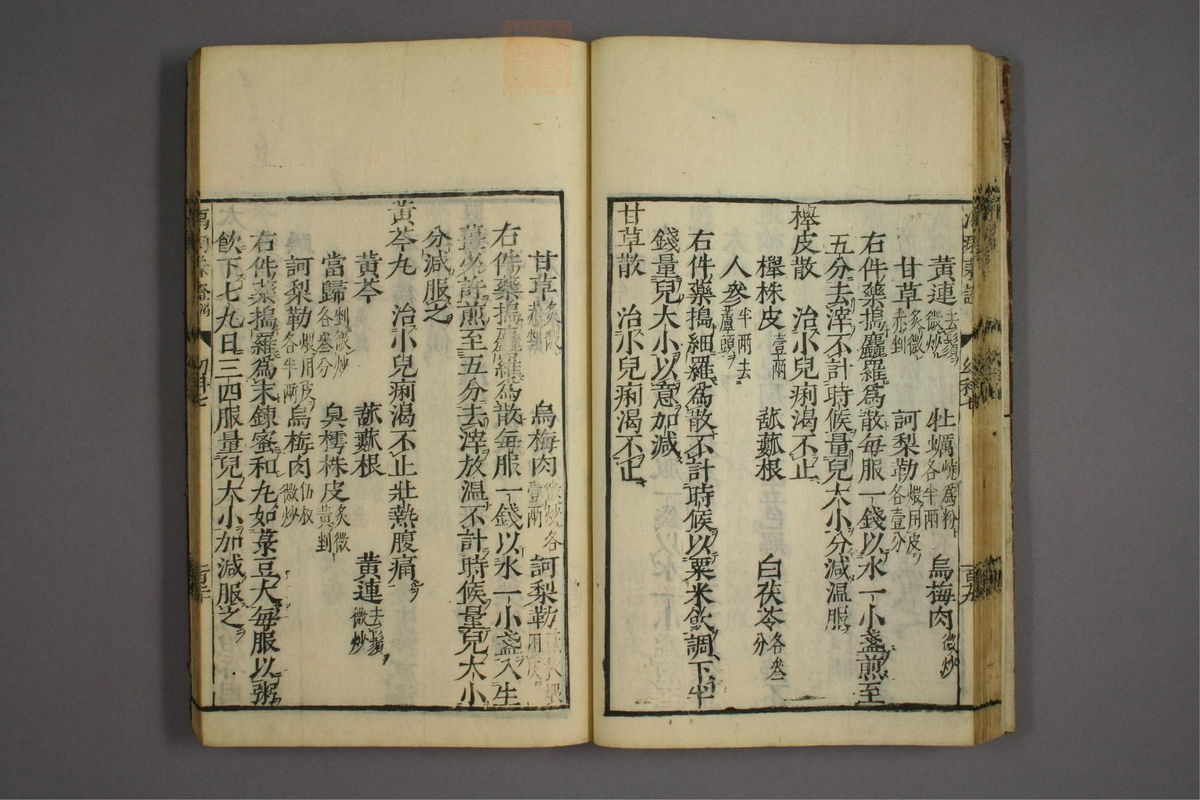 黃連去鬚微炒 牡蠣燒爲粉各半兩 烏梅肉微炒
甘草炙微赤剉 訶梨勒煨用皮各壹分
右件藥搗麤羅爲散每服一錢以水一小盞煎至
五分去滓不計時候量兒大小分減温服
櫸皮散 治小兒痢渴不止
櫸株皮壹兩 栝蔞根 白茯苓各叁分
人參半兩去蘆頭
右件藥搗細羅爲散不計時候以粟米飲調下半
錢量兒大小以意加減
甘草散 治小兒痢渴不止
甘草炙微赤剉 烏梅肉微炒各壹兩 訶梨勒煨用皮
右件藥搗麤羅爲散每服一錢以水一小盞入生
薑少許煎至五分去滓放温不計時候量兒大小
分減服之
黃芩丸 治小兒痢渴不止壯熱腹痛
黃芩 栝蔞根 黃連去鬚微炒
當歸剉微炒各叁分 臭樗株皮炙微黃剉
訶梨勒煨用皮各半兩 烏梅肉微炒
右件藥搗羅爲末鍊蜜和丸如菉豆大每服以粥
飲下七丸日三四服量兒大小加減服之